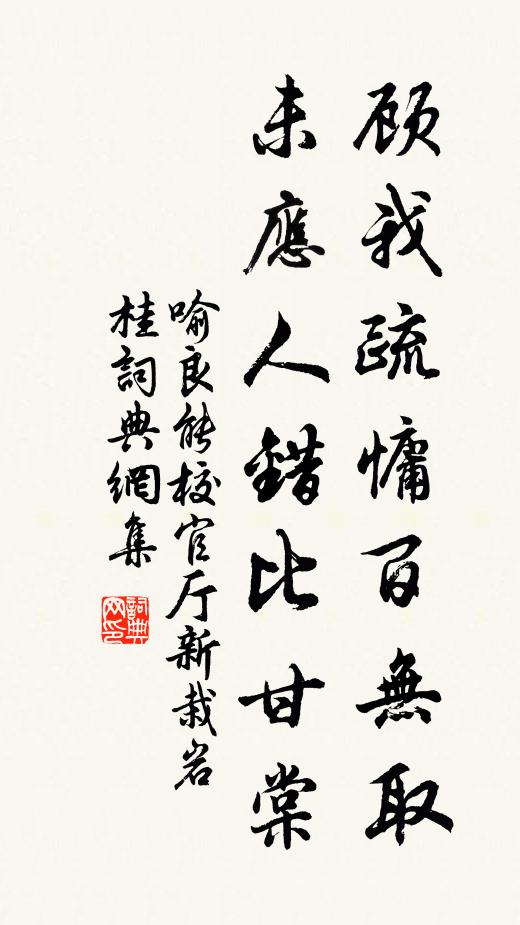 顾我疏慵百無取
未應人錯比甘棠
喻良能校官厅新栽岩
桂詞典網集
詞典
网印